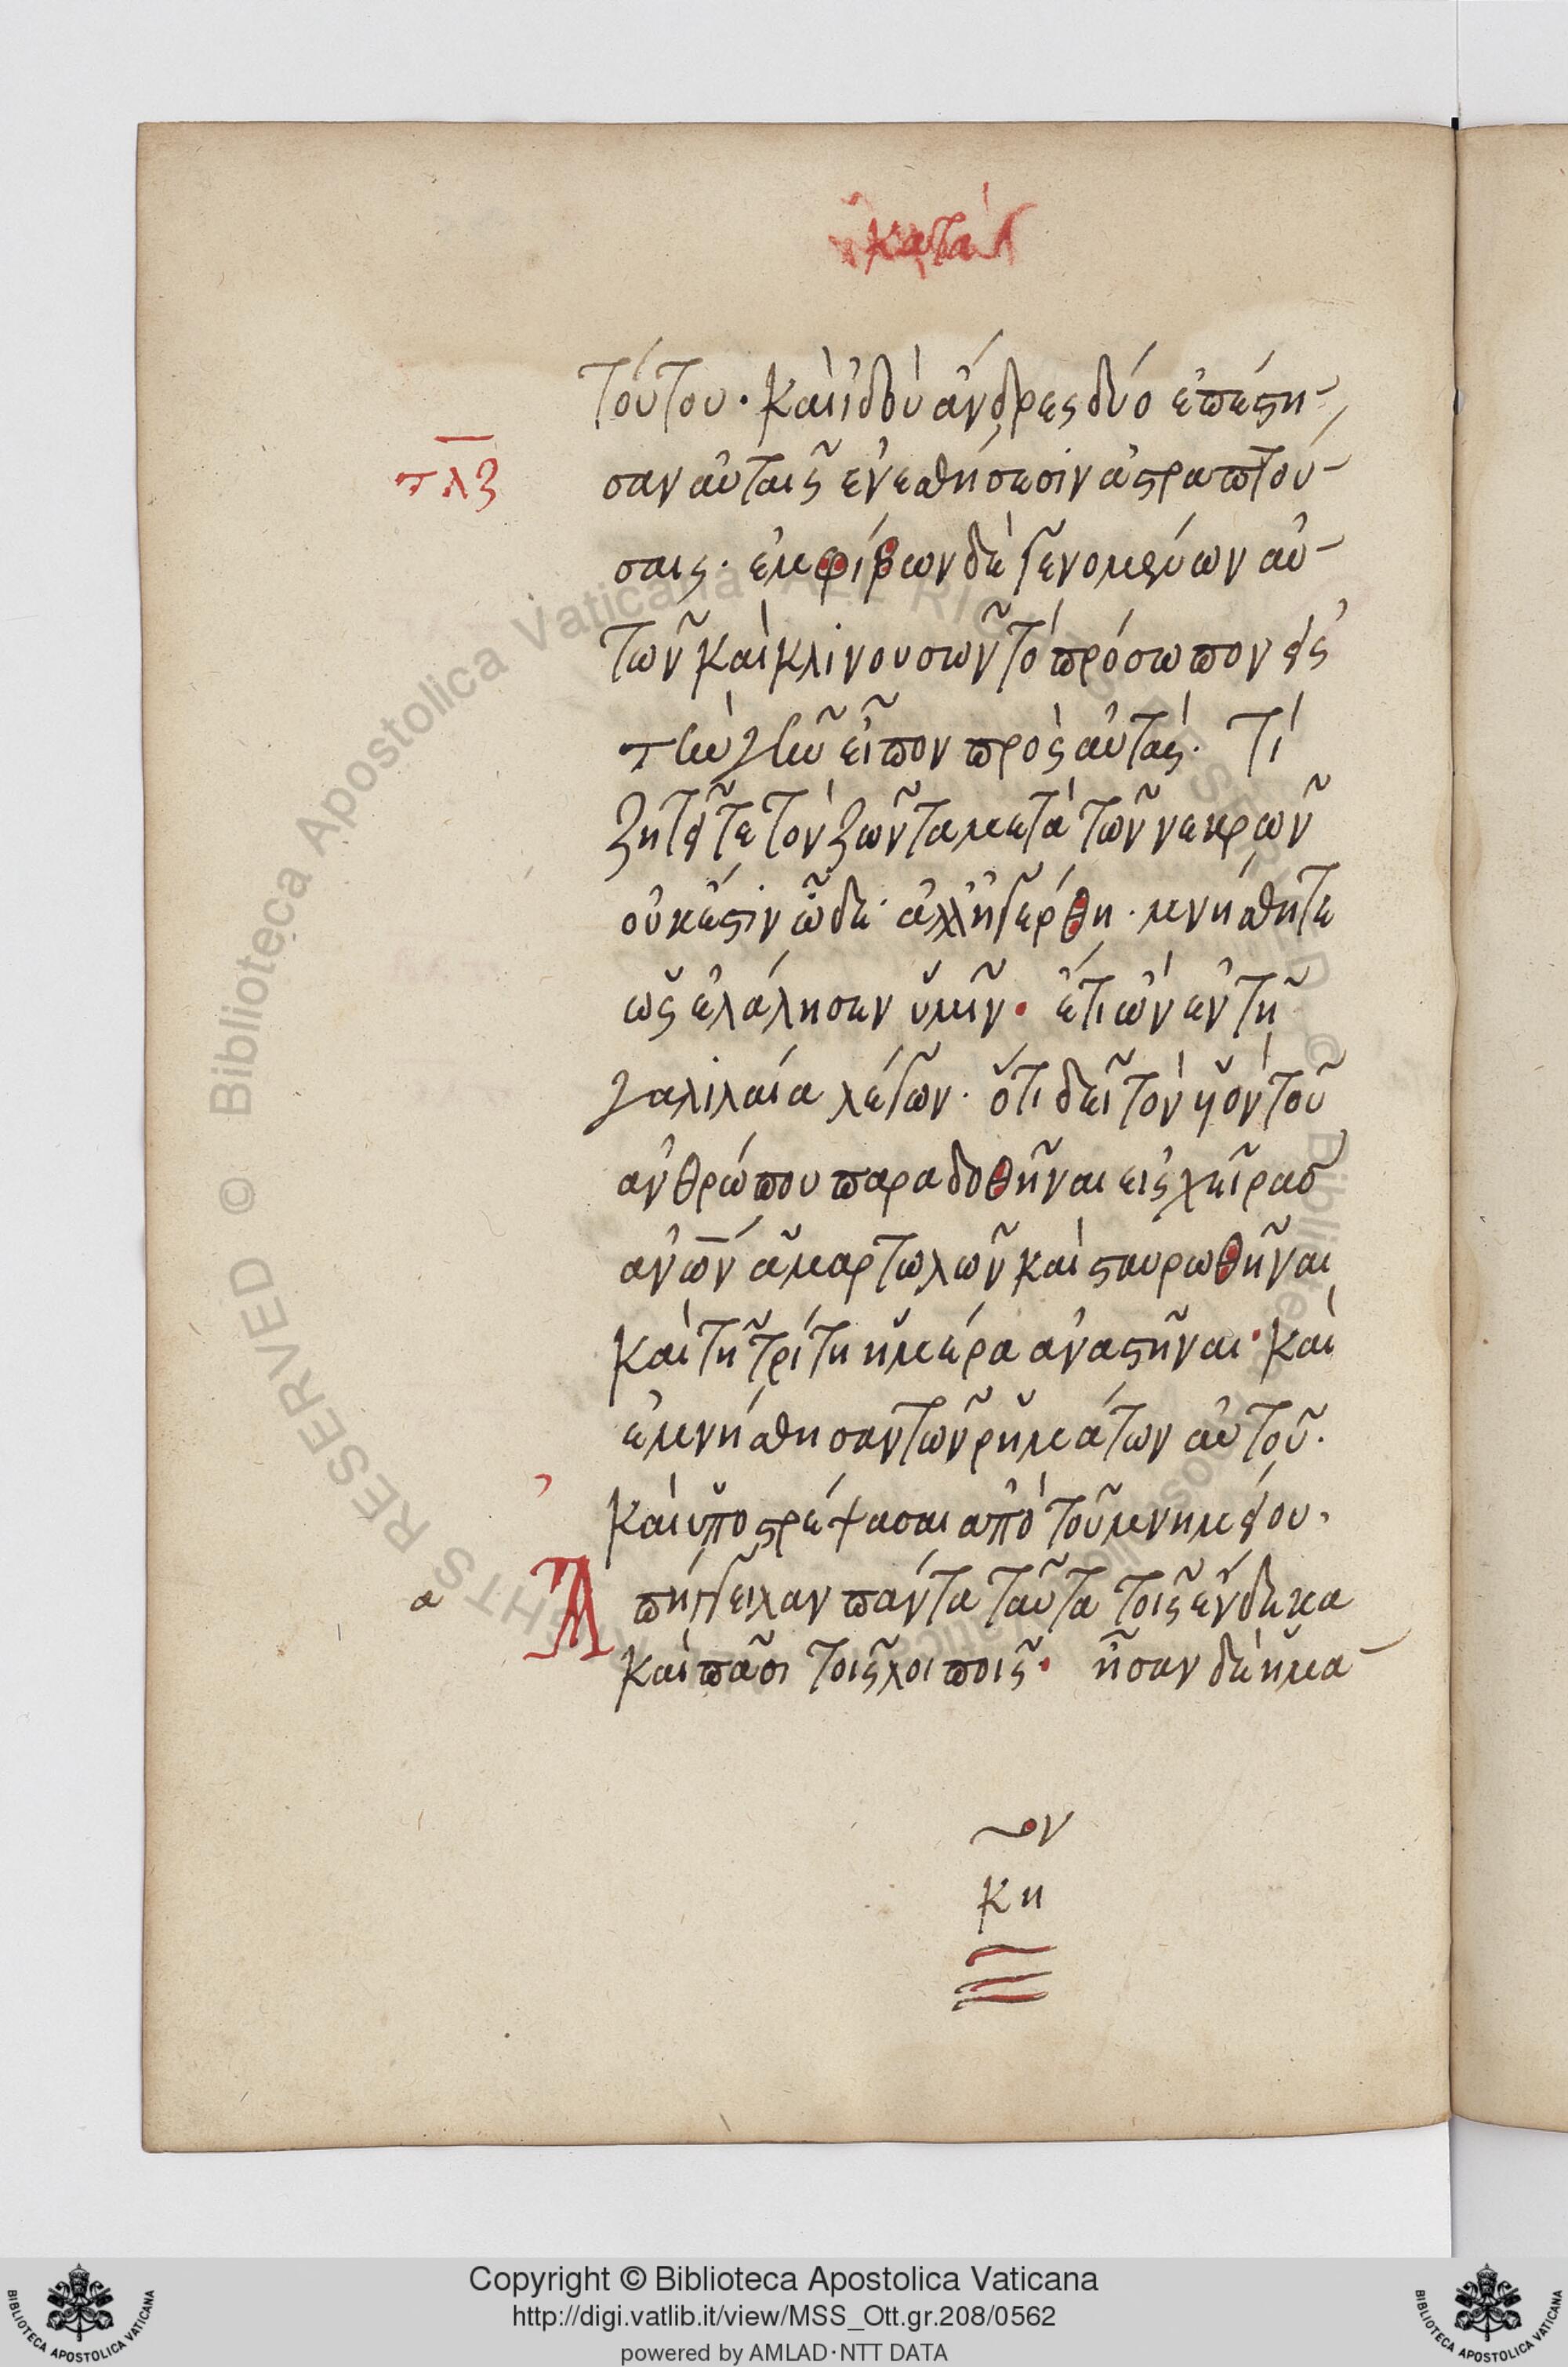 κατὰ
τούτου · καὶ ἰδοὺ ἄνδρες δύο ἐπέστη-
τλζ
σαν αὐταῖς ἐν ἐσθήσεσιν ἀστραπτού-
σαις · ἐμφόβων δὲ γενομένων αὐ-
τῶν καὶ κλινουσῶν τὸ πρόσωπον εἰς
τὴν γῆν εἶπον πρὸς αὐτάς · Τί
ζητεῖτε τὸν ζῶντα μετὰ τῶν νεκρῶν
οὐκ ἔστιν ὧδε · ἀλλ' ἠγέρθη · μνήσθητε
ὡς ἐλάλησεν ὑμῖν · ἔτι ὢν ἐν τῇ
γαλιλαία λέγων · ὅτι δεῖ τὸν υἱὸν τοῦ
ἀνθρώπου παραδοθῆναι εἰς χεῖρας
ἀνων ἁμαρτωλῶν καὶ σταυρωθῆναι
καὶ τῇ τρίτη ἡμέρα ἀναστῆναι · καὶ
ἐμνήσθησαν τῶν ῥημάτων αὐτοῦ ·
καὶ ὑποστρέψασαι ἀπὸ τοῦ μνημείου ·
α
Ἀπήγγειλαν πάντα ταῦτα τοῖς ἕνδεκα
καὶ πᾶσι τοῖς λοιποῖς · ἦσαν δὲ ἡ μα-
ον
κη
Copyright © Biblioteca Apostolica Vaticana
http://digi.vatlib.it/view/MSS_Ott.gr.208/0562
powered by AMLAD·NTT DATA
BIBLIOTECA APOSTOLICA VATICANA
BIBLIOTECA APOSTOLICA VATICANA